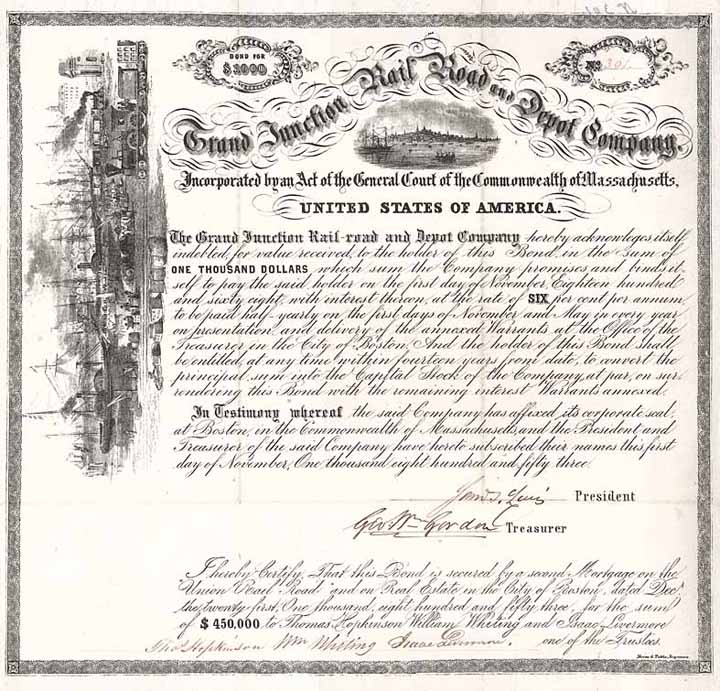 BOND FOR
$1000
No 301
Grand Junction Rail Road and Depot Company.
Incorporated by an Act of the General Court of the Commonwealth of Massachusetts,
UNITED STATES OF AMERICA.
The Grand Junction Rail-road and Depot Company hereby acknowleges itself
indebted, for value received, to the holder of this Bond, in the sum of
ONE THOUSAND DOLLARS which sum the Company promises and binds it-
self to pay the said holder on the first day of November, Eighteen hundred
and sixty eight, with interest thereon, at the rate of SIX per cent per annum,
to be paid half-yearly on the first days of November and May in every year
on presentation and delivery of the annexed Warrants at the Office of the
Treasurer in the City of Boston. And the holder of this Bond shall
be entitled, at any time within fourteen years from date, to convert the
principal sum into the Capital Stock of the Company, at par, on sur-
rendering this Bond with the remaining interest Warrants annexed.
In Testimony whereof the said Company has affixed its corporate seal,
at Boston, in the Commonwealth of Massachusetts, and the President and
Treasurer of the said Company have hereto subscribed their names this first
day of November, One thousand eight hundred and fifty three.
President
Geo Wm Gordon Treasurer
I hereby Certify, That this Bond is secured by a second Mortgage on the
"Union Rail-Road" and on Real Estate in the City of Boston, dated Dec
the twenty first, One thousand, eight hundred and fifty three, for the sum
of $450,000 to Thomas Hopkinson William Whiting and Isaac Livermore
Thos Hopkinson Wm Whiting Isaac Livermore. one of the Trustees.